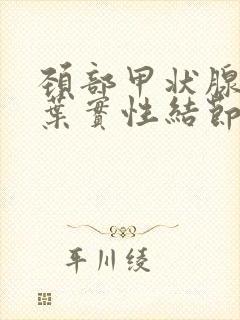 頚部甲状腺
葉實性結節
平川绫